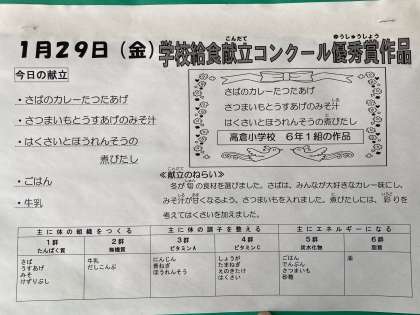 1月29日（金）学校給食献立コンクール優秀賞作品
今日の献立
・さばのカレーたつたあげ
・さつまいもとうすあげのみそ汁
・はくさいとほうれんそうの
煮びたし
・ごはん
・牛乳
さばのカレーたつたあげ
さつまいもとうすあげのみそ汁
はくさいとほうれんそうの煮びたし
高倉小学校 6年1組の作品
≪献立のねらい≫
冬が旬の食材を選びました。さばは、みんなが大好きなカレー味にし、
みそ汁が甘くなるよう、さつまいもを入れました。煮びたしには、彩りを
考えてはくさいを加えました。
主に体の組織をつくる 主に体の調子を整える 主にエネルギーになる
1群 2群 3群 4群 5群 6群
たんぱく質 無機質 ビタミンA ビタミンC 炭水化物 脂質
さば 牛乳 にんじん しょうが ごはん 油
うすあげ だしこんぶ 青ねぎ たまねぎ でんぷん
みそ ほうれんそう えのきたけ さつまいも
けずりぶし はくさい 砂糖